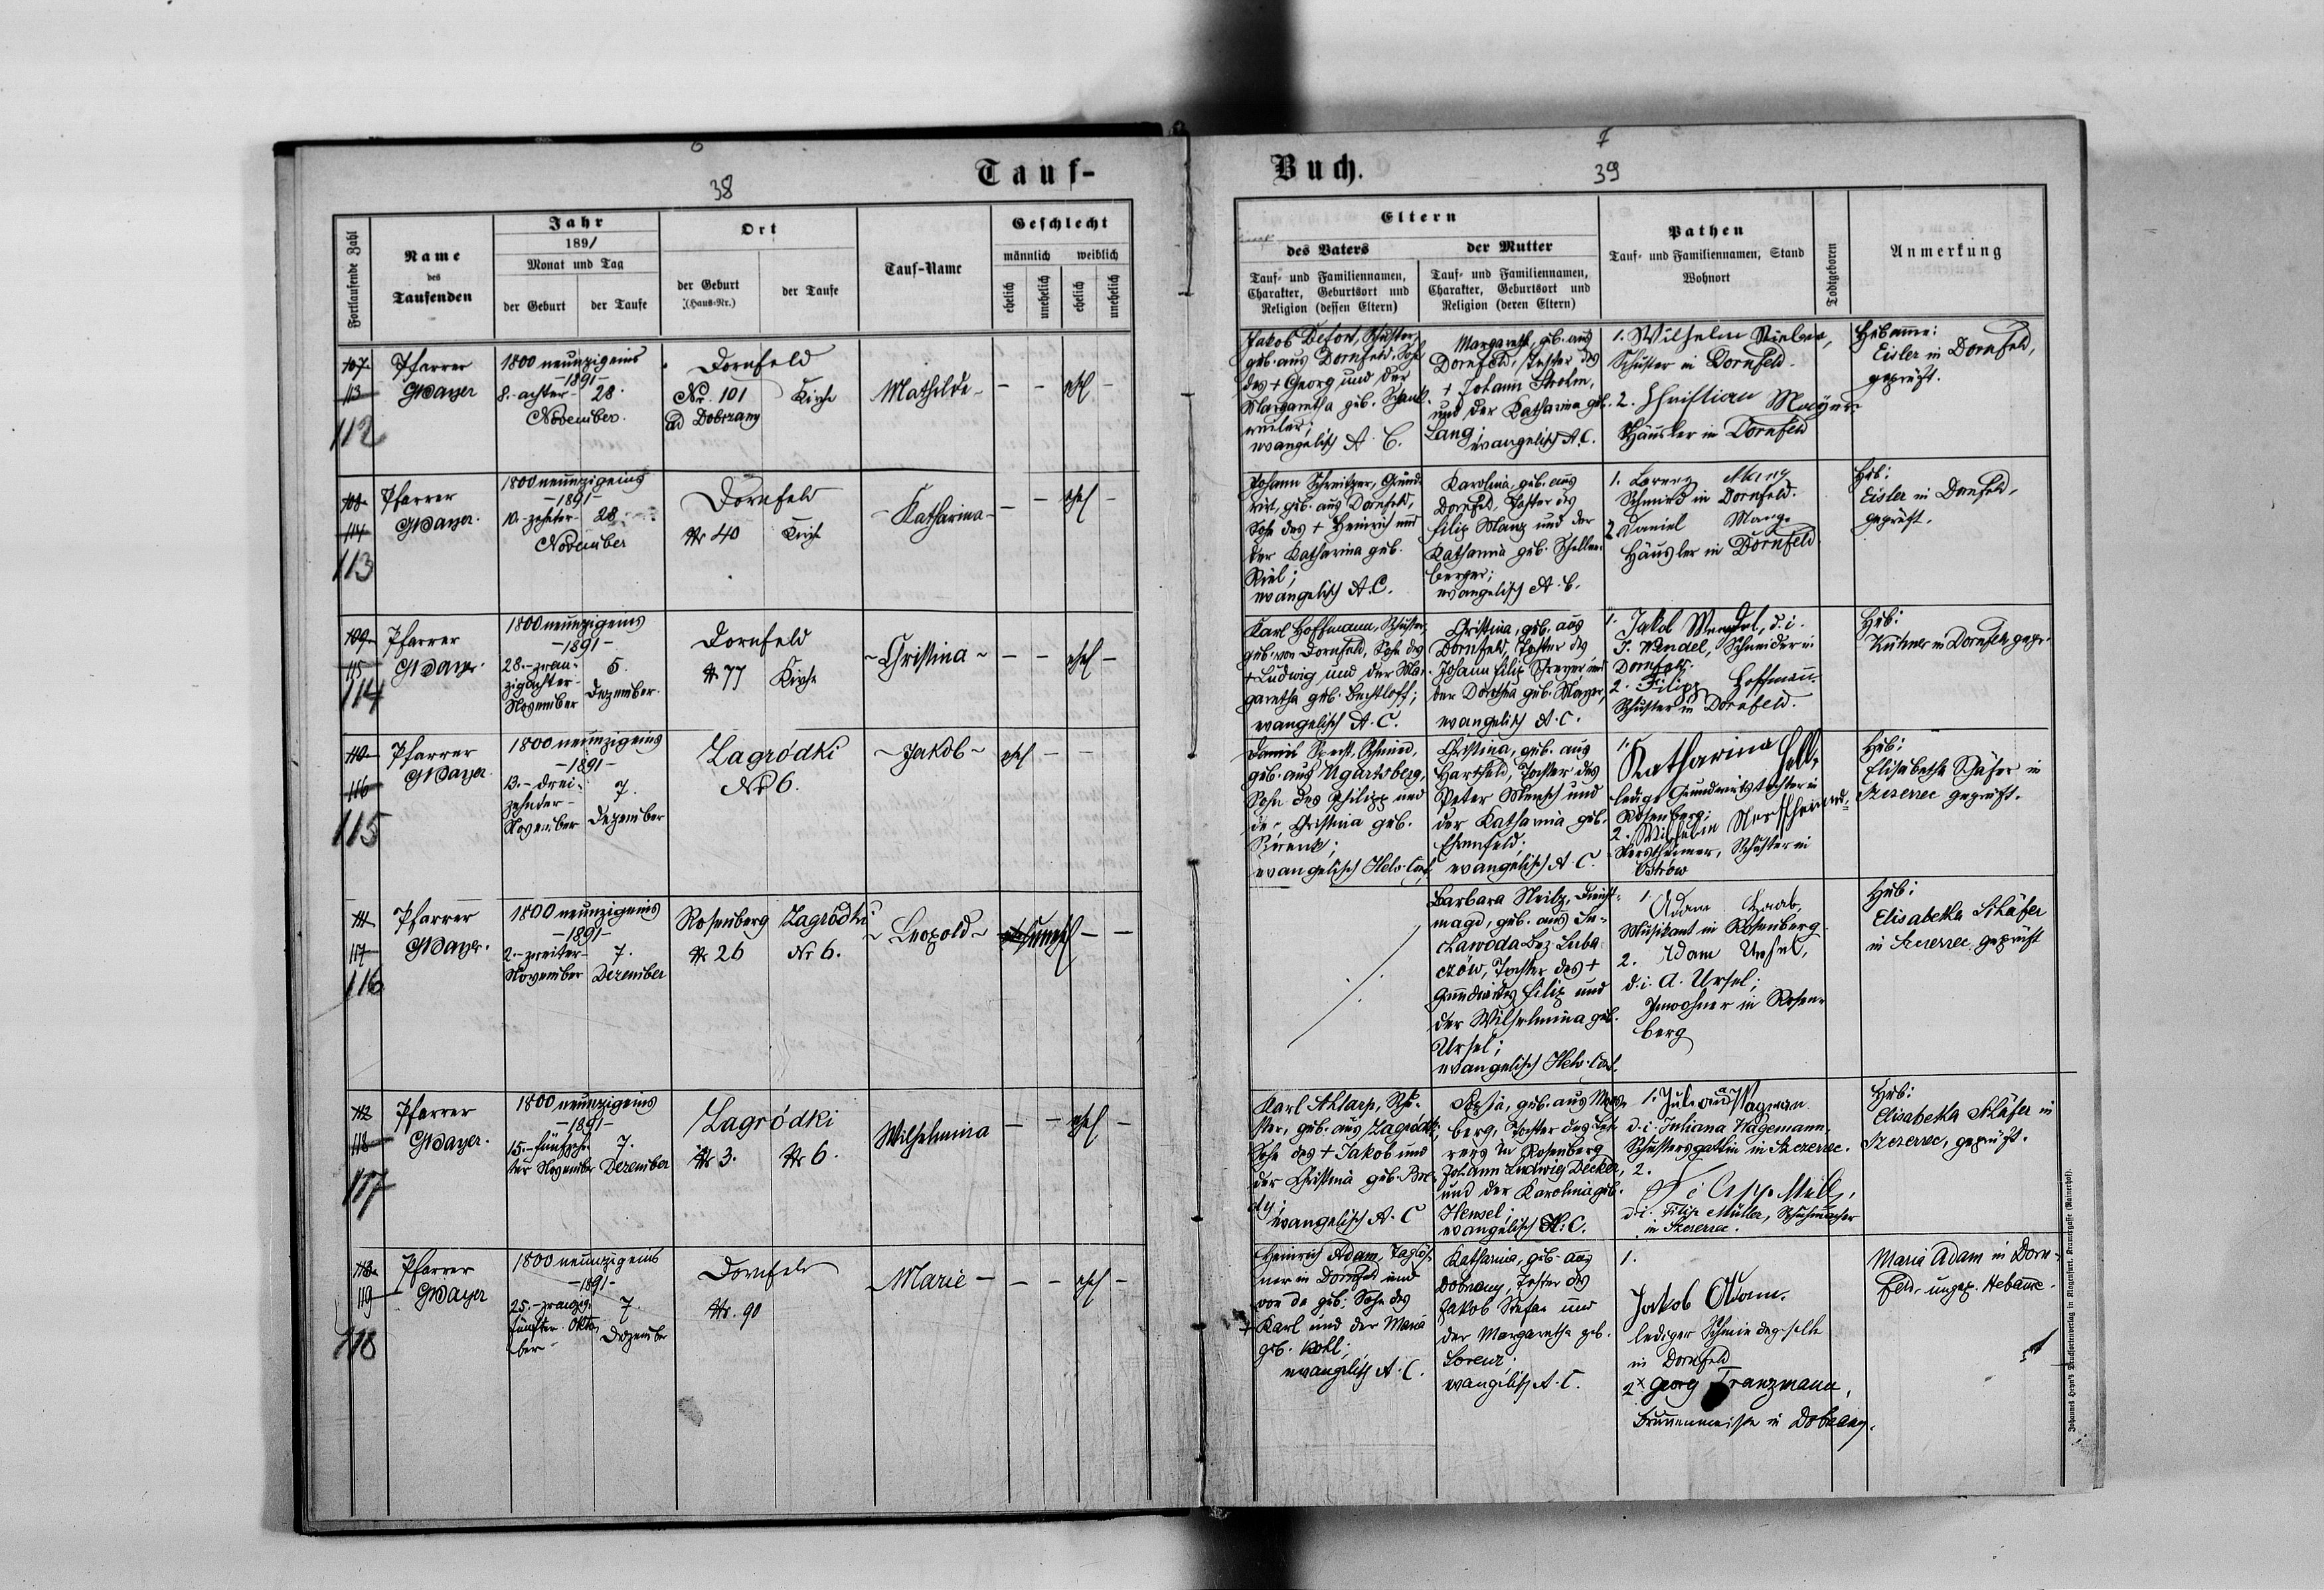 6
38
Tauf-
Fortlaufende Zahl
Name
des
Taufenden
Jahr
1891
Monat und Tag
der Geburt
der Taufe
Ort
der Geburt
(Haus-Nr.)
der Taufe
Tauf-Name
Geschlecht
männlich
weiblich
ehelich
unehelich
ehelich
unehelich
107.
113
112
Pfarrer
GMayer
1800 neunzigeins
-1891-
8.-achter-
28.
November.
Dornfeld
Nr. 101
Kirche
ad Dobrzany
Mathilde-
-
-
ehel
-
108
114
113
Pfarrer
GMayer.
1800 neunzigeins
-1891-
10.-zehnter-
28.
November
Dornfeld
Nr 40
Kirche
-Katharina-
-
-
ehel
-
109
115
114
Pfarrer
GMayer.
1800 neunzigeins
-1891-
28.-zwan-
5.
zigachter-
November
Dezember.
Dornfeld
Nr 77
Kirche
-Christina-
-
-
ehel
-
110
116
115
Pfarrer
GMayer.
1800 neunzigeins
-1891-
13.-drei-
7.
zehnter-
November
Dezember
Zagródki
No 6.
-Jakob-
ehel
-
-
111
117
116
Pfarrer
GMayer.
1800 neunzigeins
-1891-
2.-zweiter-
7.
November
Dezember
Rosenberg
Zagródki
Nr 26
Nr 6.
-Leopold-
unehel
-
-
112
118
117
Pfarrer
GMayer.
1800 neunzigeins
-1891-
15.-fünfzehn
7.
ter November
Dezember
Zagródki
Nr 3.
Nr 6.
Wilhelmina
-
-
ehel
-
113
119
118
Pfarrer
GMayer
1800 neunzigeins
-1891-
25.-zwanzig
7.
fünfter Okto
ber-
Dezember
Dornfeld
Nr. 90
Marie-
-
-
ehel
-
7
39
Buch.
Eltern
des Vaters
der Mutter
Tauf- und Familiennamen,
Charakter, Geburtsort und
Religion (dessen Eltern)
Tauf- und Familiennamen,
Charakter, Geburtsort und
Religion (deren Eltern)
Pathen
Tauf- und Familiennamen, Stand
Wohnort
Todtgeboren
Anmerkung
Jakob Schuster,
geb. aus Dornfeld, Sohn
des + Georg und der
Margaretha geb.
evangelisch A. C.
Margareth, geb. aus
Dornfeld, Tochter des
+ Johann
und der Katharina geb.
Lang;
evangelisch A. C.
1. Wilhelm
Schuster in Dornfeld.
2. Christian Mayer
Häusler in Dornfeld
Hebamme:
Eisler in Dornfeld,
geprüft.
Johann Schweitzer, Grund-
wirt, geb. aus Dornfeld,
Sohn des + Heinrich und
der Katharina geb.
evangelisch A. C.
Karolina, geb. aus
Dornfeld, Tochter des
Filip Manz und der
Katharina geb. Schellen-
berger;
evangelisch A. C.
1. Lorenz Manz
Schmied in Dornfeld.
2 Daniel Manz
Häusler in Dornfeld
Heb:
Eisler in Dornfeld,
geprüft.
Karl Hoffmann, Schuster,
geb. von Dornfeld, Sohn des
+ Ludwig und der Mar-
garetha geb. Bechtloff;
evangelisch A. C.
Christina, geb. aus
Dornfeld, Tochter des
Johann Filip und
der Dorothea geb. Mayer,
evangelisch A. C.
1. Jakob Wendel, d. i.
J. Wendel, Schneider in
Dornfeld.
2. Filipp Hoffmann
Schuster in Dornfeld.
Heb:
in Dornfeld, gepr.
Daniel Schmied,
geb. aus Ugartsberg,
Sohn des Philipp und
der Christina geb.
evangelisch Helv. Conf.
Christina, geb. aus
Hartfeld, Tochter des
Peter Mensch und
der Katharina geb.
Ehrenfeld;
evangelisch A. C.
1.
Katharina
ledige Grundwirtstochter in
Rosenberg;
2. Wilhelm
Schuster in
Ostrów
Heb:
Elisabetha Schäfer in
Szczerzec geprüft.
Barbara Dienst-
magd, geb. aus
Bez.
czów, Tochter des +
Grundwirtes Filip und
der Wilhelmina geb.
Ursel;
evangelisch Helv. Conf.
1. Adam
Musikant in Rosenberg.
2. Adam Ursel,
d. i. A. Ursel;
Inwohner in Rosen-
berg
Heb:
Elisabetha Schäfer
in Szczerzec, geprüft
Karl Schu-
ster, geb. aus Zagródki,
Sohn des + Jakob und
der Christina geb.
evangelisch A. C
Sophia, geb. aus
berg, Tochter des Leh-
rers in Rosenberg
Johann Ludwig Decker,
und der Karolina geb.
Hensel;
evangelisch H. C.
1. Juliana Wagman
d. i. Juliana Wagemann,
Schustersgattin in Szczerzec.
2.
d. i. Filip Müller, Schuhmacher
in Szczerzec.
Heb:
Elisabetha Schäfer in
Szczerzec, geprüft.
Heinrich Adam, Taglöh-
ner in Dornfeld und
von da geb: Sohn des
+ Karl und der Maria
geb. Kohl;
evangelisch A. C.
Katharina, geb. aus
Dobrzany, Tochter des
Jakob Stefan und
der Margaretha geb.
Lorenz;
evangelisch A. C.
1.
Jakob Adam.
lediger Schmiedgeselle
in Dornfeld
2x Georg Franzmann,
Brunnenmeister in Dobrzany.
Maria Adam in Dorn-
feld, ungep. Hebame.
Johannes Heyn's Drucksortenverlag in Klagenfurt, Kramergasse (Rainerhof).